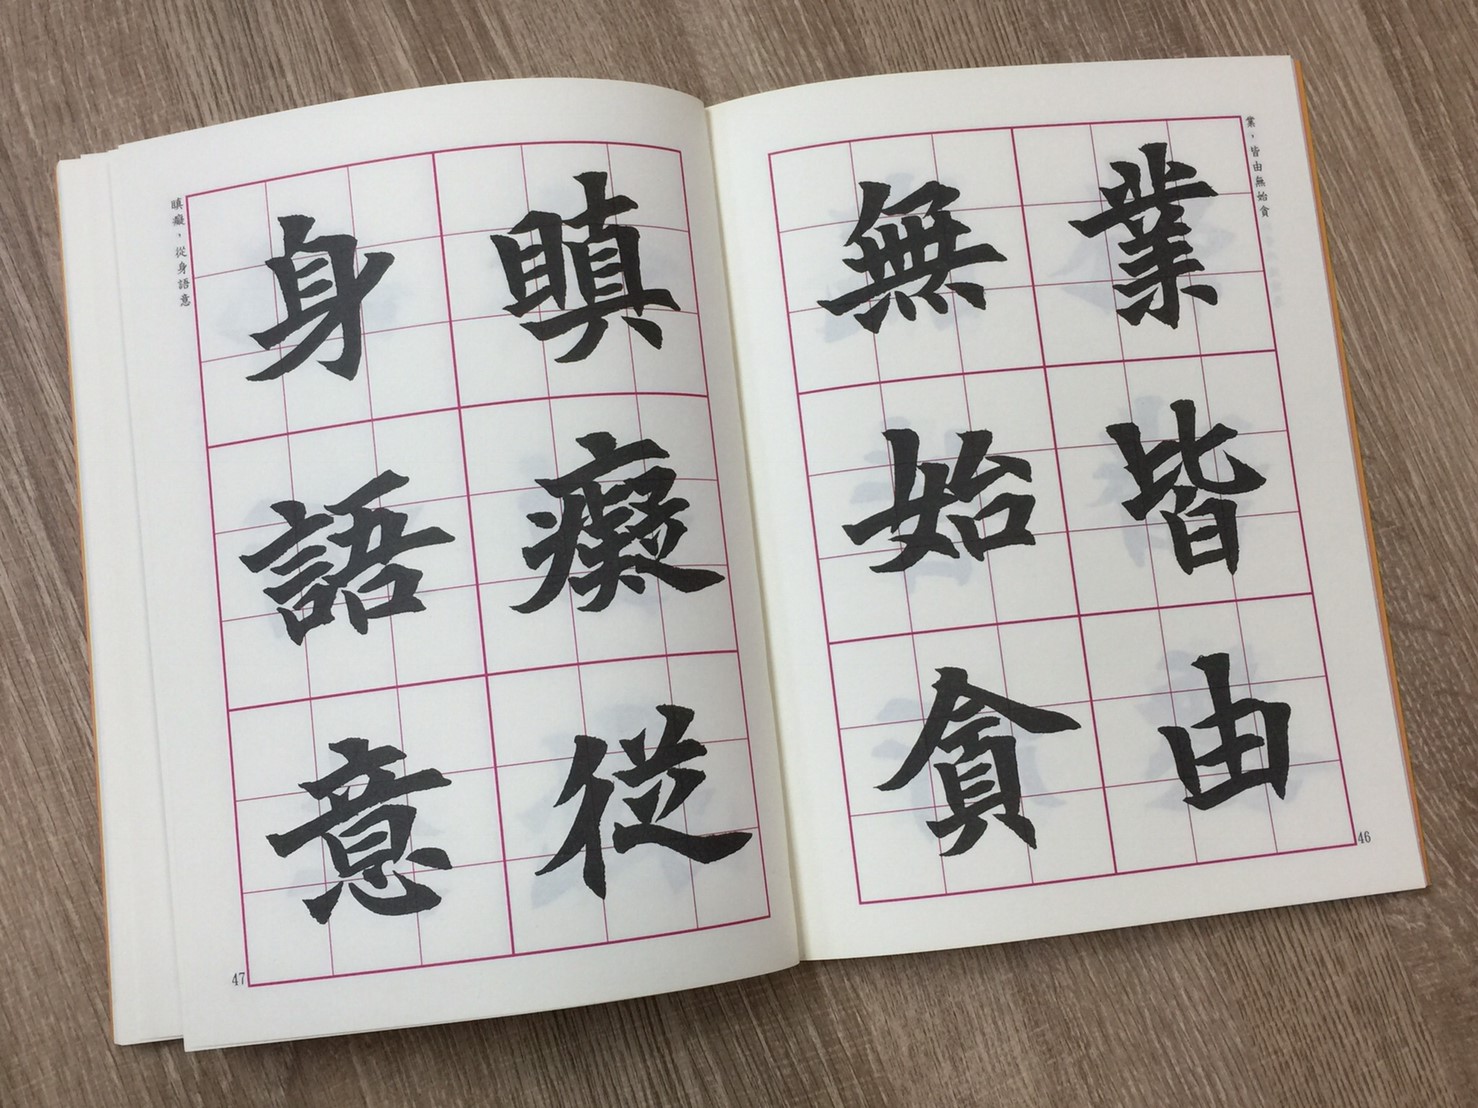 業，皆由無始貪
業皆由
無始貪
46
瞋癡從
身語意
瞋癡，從身語意
47